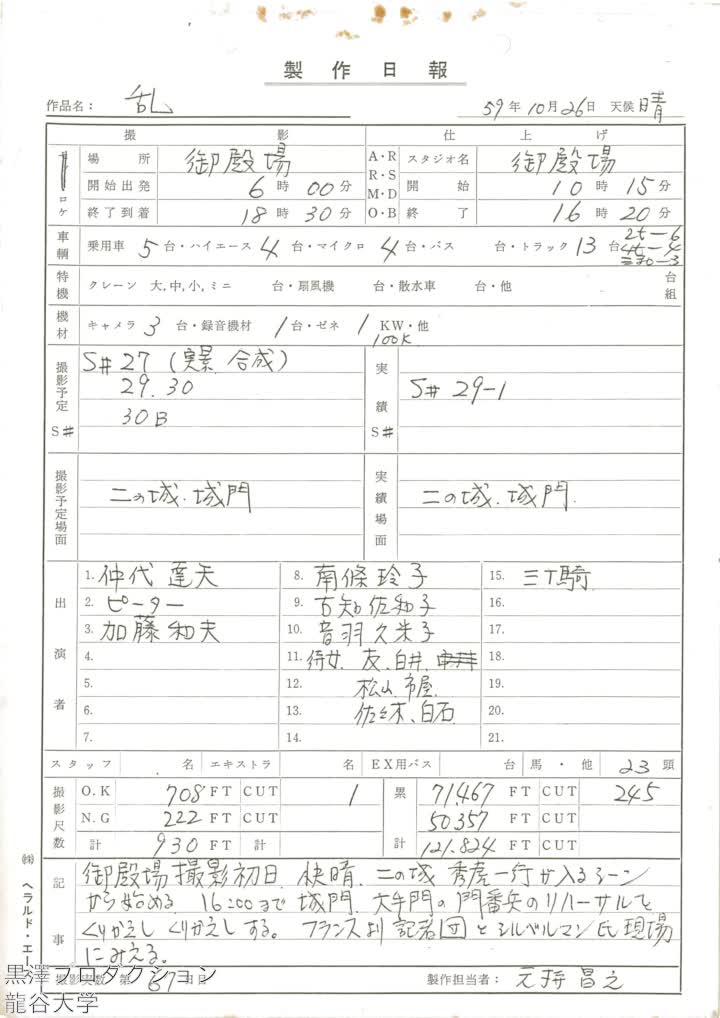 製作日報
作品名： 乱 59年10月26日 天候 晴
撮 影 仕 上 げ
ロケ 場所 御殿場 A・R R・S M・D O・B スタジオ名 御殿場
開始出発 6時00分 開始 10時15分
終了到着 18時30分 終了 16時20分
車輌 乗用車 5台・ハイエース 4台・マイクロ 4台・バス 台・トラック 13台 2t－6 4t－4
特機 クレーン 大,中,小,ミニ 台・扇風機 台・散水車 台・他 台組
機材 キャメラ 3台・録音機材 1台・ゼネ 1 KW・他
100K
撮影予定 S# S#27 (実景 合成) 実績 S# S# 29-1
29.30
30B
撮影予定場面 二の城.城門 実績場面 二の城.城門.
出演者 1. 仲代達矢 8. 南條玲子 15. 三丁騎
2. ピーター 9. 古知佐和子 16.
3. 加藤和夫 10. 音羽久米子 17.
4. 11. 侍女 友.白井. 18.
5. 12. 松山.市屋. 19.
6. 13. 佐々木、白石 20.
7. 14. 21.
スタッフ 名 エキストラ 名 EX用バス 台 馬・他 23頭
撮影尺数 O.K 708 FT CUT 1 累計 71,467 FT CUT 245
N.G 222 FT CUT 50357 FT CUT
計 930 FT 計 121.824 FT CUT
記事 御殿場撮影初日. 快晴. 二の城 秀虎一行が入るシーン
から始める. 16:00まで 城門. 大手門の門番兵のリハーサルを
くりかえしくりかえしする. フランスより記者団とシルベルマン氏現場
にみえる。
撮影実数 第67日目 製作担当者： 元持昌之
㈱ヘラルド・エー
黒澤プロダクション
龍谷大学